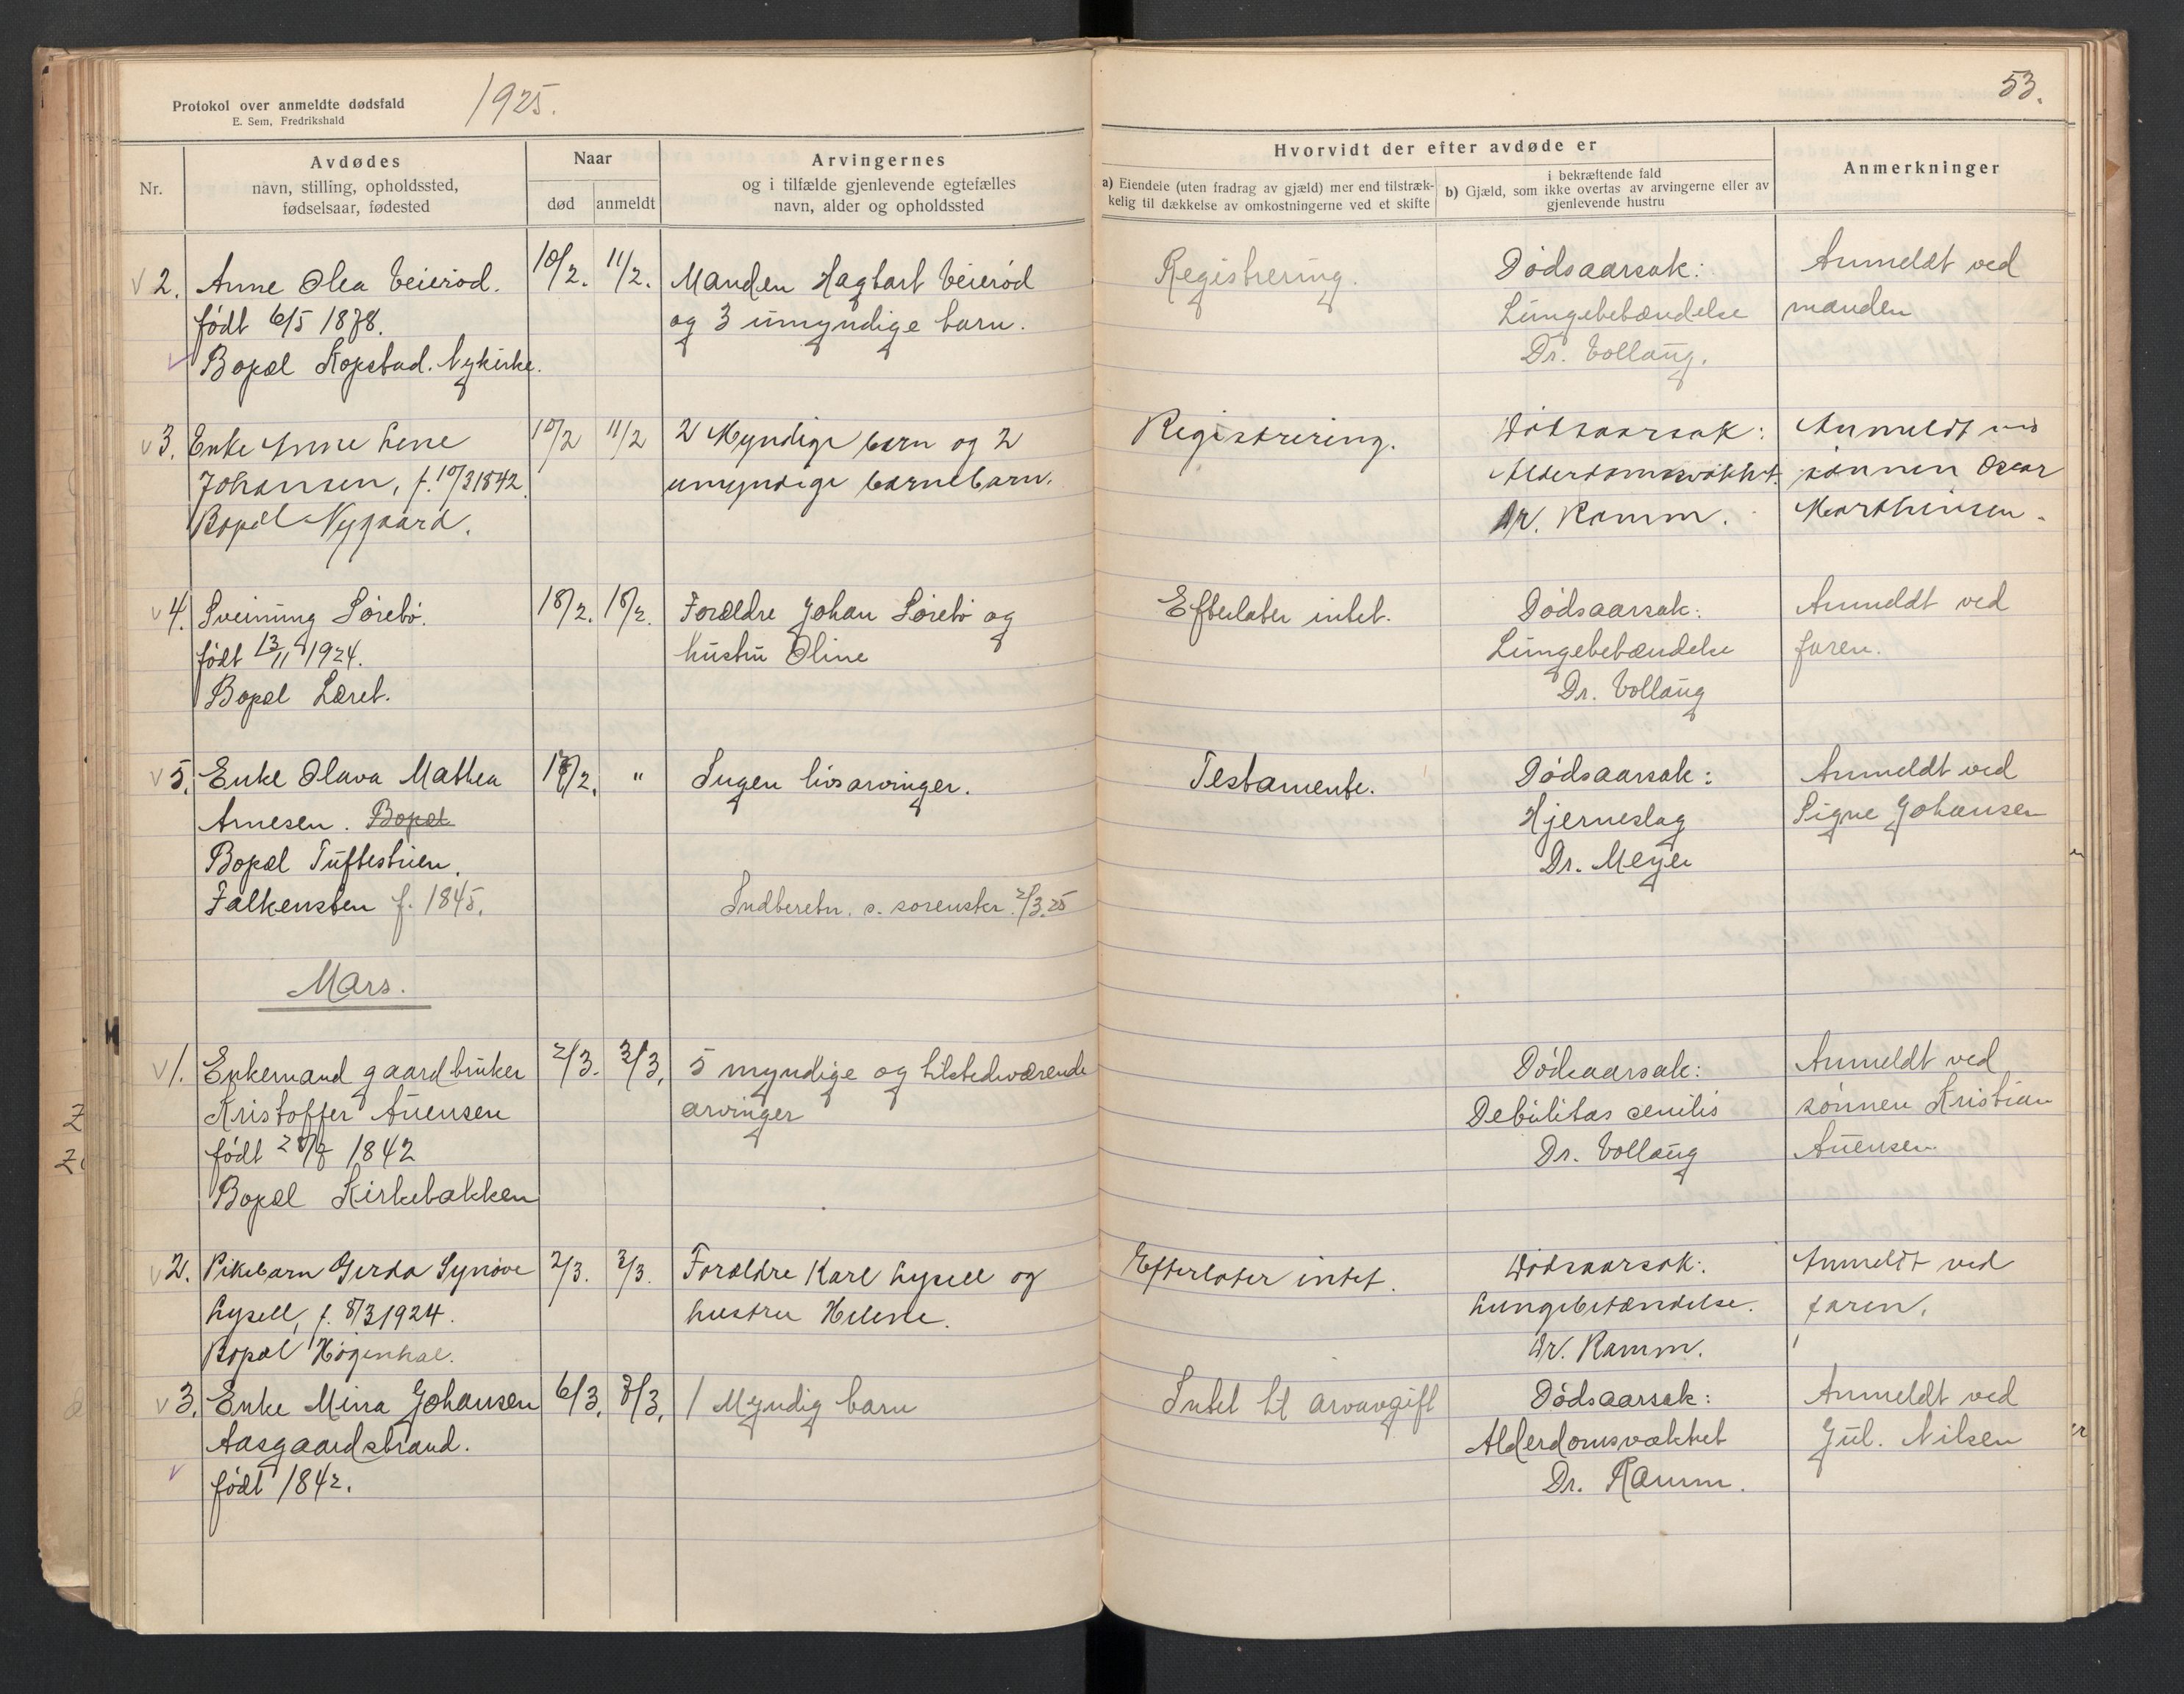 Protokol over anmeldte dødsfald
E. Sem, Fredrikshald
1925.
53.
Nr.
Avdødes
navn, stilling, opholdssted,
fødselsaar, fødested
Naar
død
anmeldt
Arvingernes
og i tilfælde gjenlevende egtefælles
navn, alder og opholdssted
Hvorvidt der efter avdøde er
a) Eiendele (uten fradrag av gjæld) mer end tilstræk-
kelig til dækkelse av omkostningerne ved et skifte
i bekræftende fald
b) Gjæld, som ikke overtas av arvingerne eller av
gjenlevende hustru
Anmerkninger
2. Anne Olea Veierød.
født 6/5 1878.
Bopæl Kopstad. Nykirke.
10/2. 11/2.
Manden Hagbart Veierød
og 3 umyndige barn.
Registrering.
Dødsaarsak:
Lungebetændelse
Dr. Vollaug.
Anmeldt ved
manden
3. Enke Anne Lene
Johansen, f. 10/3 1842.
Bopæl Nygaard.
10/2 11/2
2 Myndige barn og 2
umyndige barnebarn.
Registrering.
Dødsaarsak:
Alderdomsvakhet.
Dr. Ramm.
Anmeldt ved
sønnen Oscar
Marthinsen.
4. Sveinung Sørebø.
født 13/11 1924.
Bopæl Læret.
18/2. 18/2.
Forældre Johan Sørebø og
hustru Oline
Efterlater intet.
Dødsaarsak:
Lungebetændelse
Dr. Vollaug
Anmeldt ved
faren.
5. Enke Olava Mathea
Arnesen. Bopæl
Bopæl Tuftestuen.
Falkensten f. 1845.
"
Ingen livsarvinger.
Indberetn. s. sorenskr. 2/3.25
Testamente.
Dødsaarsak:
Hjerneslag
Dr. Meyer
Anmeldt ved
Signe Johansen
Mars.
1. Enkemand gaardbruker
Kristoffer Auensen
født 1842
Bopæl Kirkebakken
2/3. 3/3.
5 myndige og tilstedeværende
arvinger
Dødsaarsak:
Debilitas senilis
Dr. Vollaug
Anmeldt ved
sønnen Kristian
Auensen
2. Pikebarn Gerda Synøve
Lysell, f. 8/3 1924.
Bopæl Høgenhal.
2/3. 3/3.
Forældre Karl Lysell og
hustru Helene.
Efterlater intet.
Dødsaarsak:
Lungebetændelse.
Dr. Ramm.
Anmeldt ved
faren.
3. Enke Mina Johansen
Aasgaardstrand.
født 1842.
6/3.
1 Myndig barn
Intet til arvavgift
Dødsaarsak:
Alderdomsvakhet
Dr. Ramm.
Anmeldt ved
Gul. Nilsen